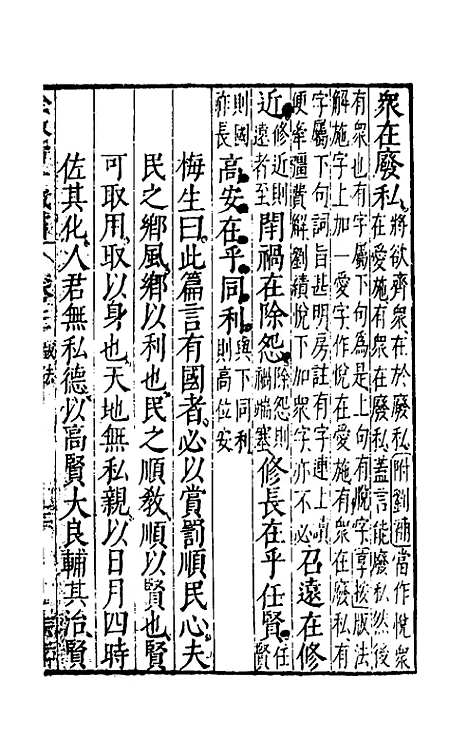 眾在廢私將欲齊眾在於廢私附劉補當作悅眾在愛施有眾在廢私蓋言能廢私然後
有眾也有字屬下句為是上句有悅字享按版法解施字上加一愛字作悅在愛施有眾在廢私有
字屬下句詞旨甚明房註有字連上讀便牽彊費解劉績悅下加眾字亦不必召遠在修
近修近則遠者至閉禍在除怨除怨則禍端塞修長在乎任賢任賢
則國祚長高安在乎同利與下同利則高位安
梅生曰此篇言有國者必以賞罰順民心夫
民之鄉風鄉以利也民之順教順以賢也賢
可取用取以身也天地無私親以日月四時
佐其化人君無私德以高賢大良輔其治賢